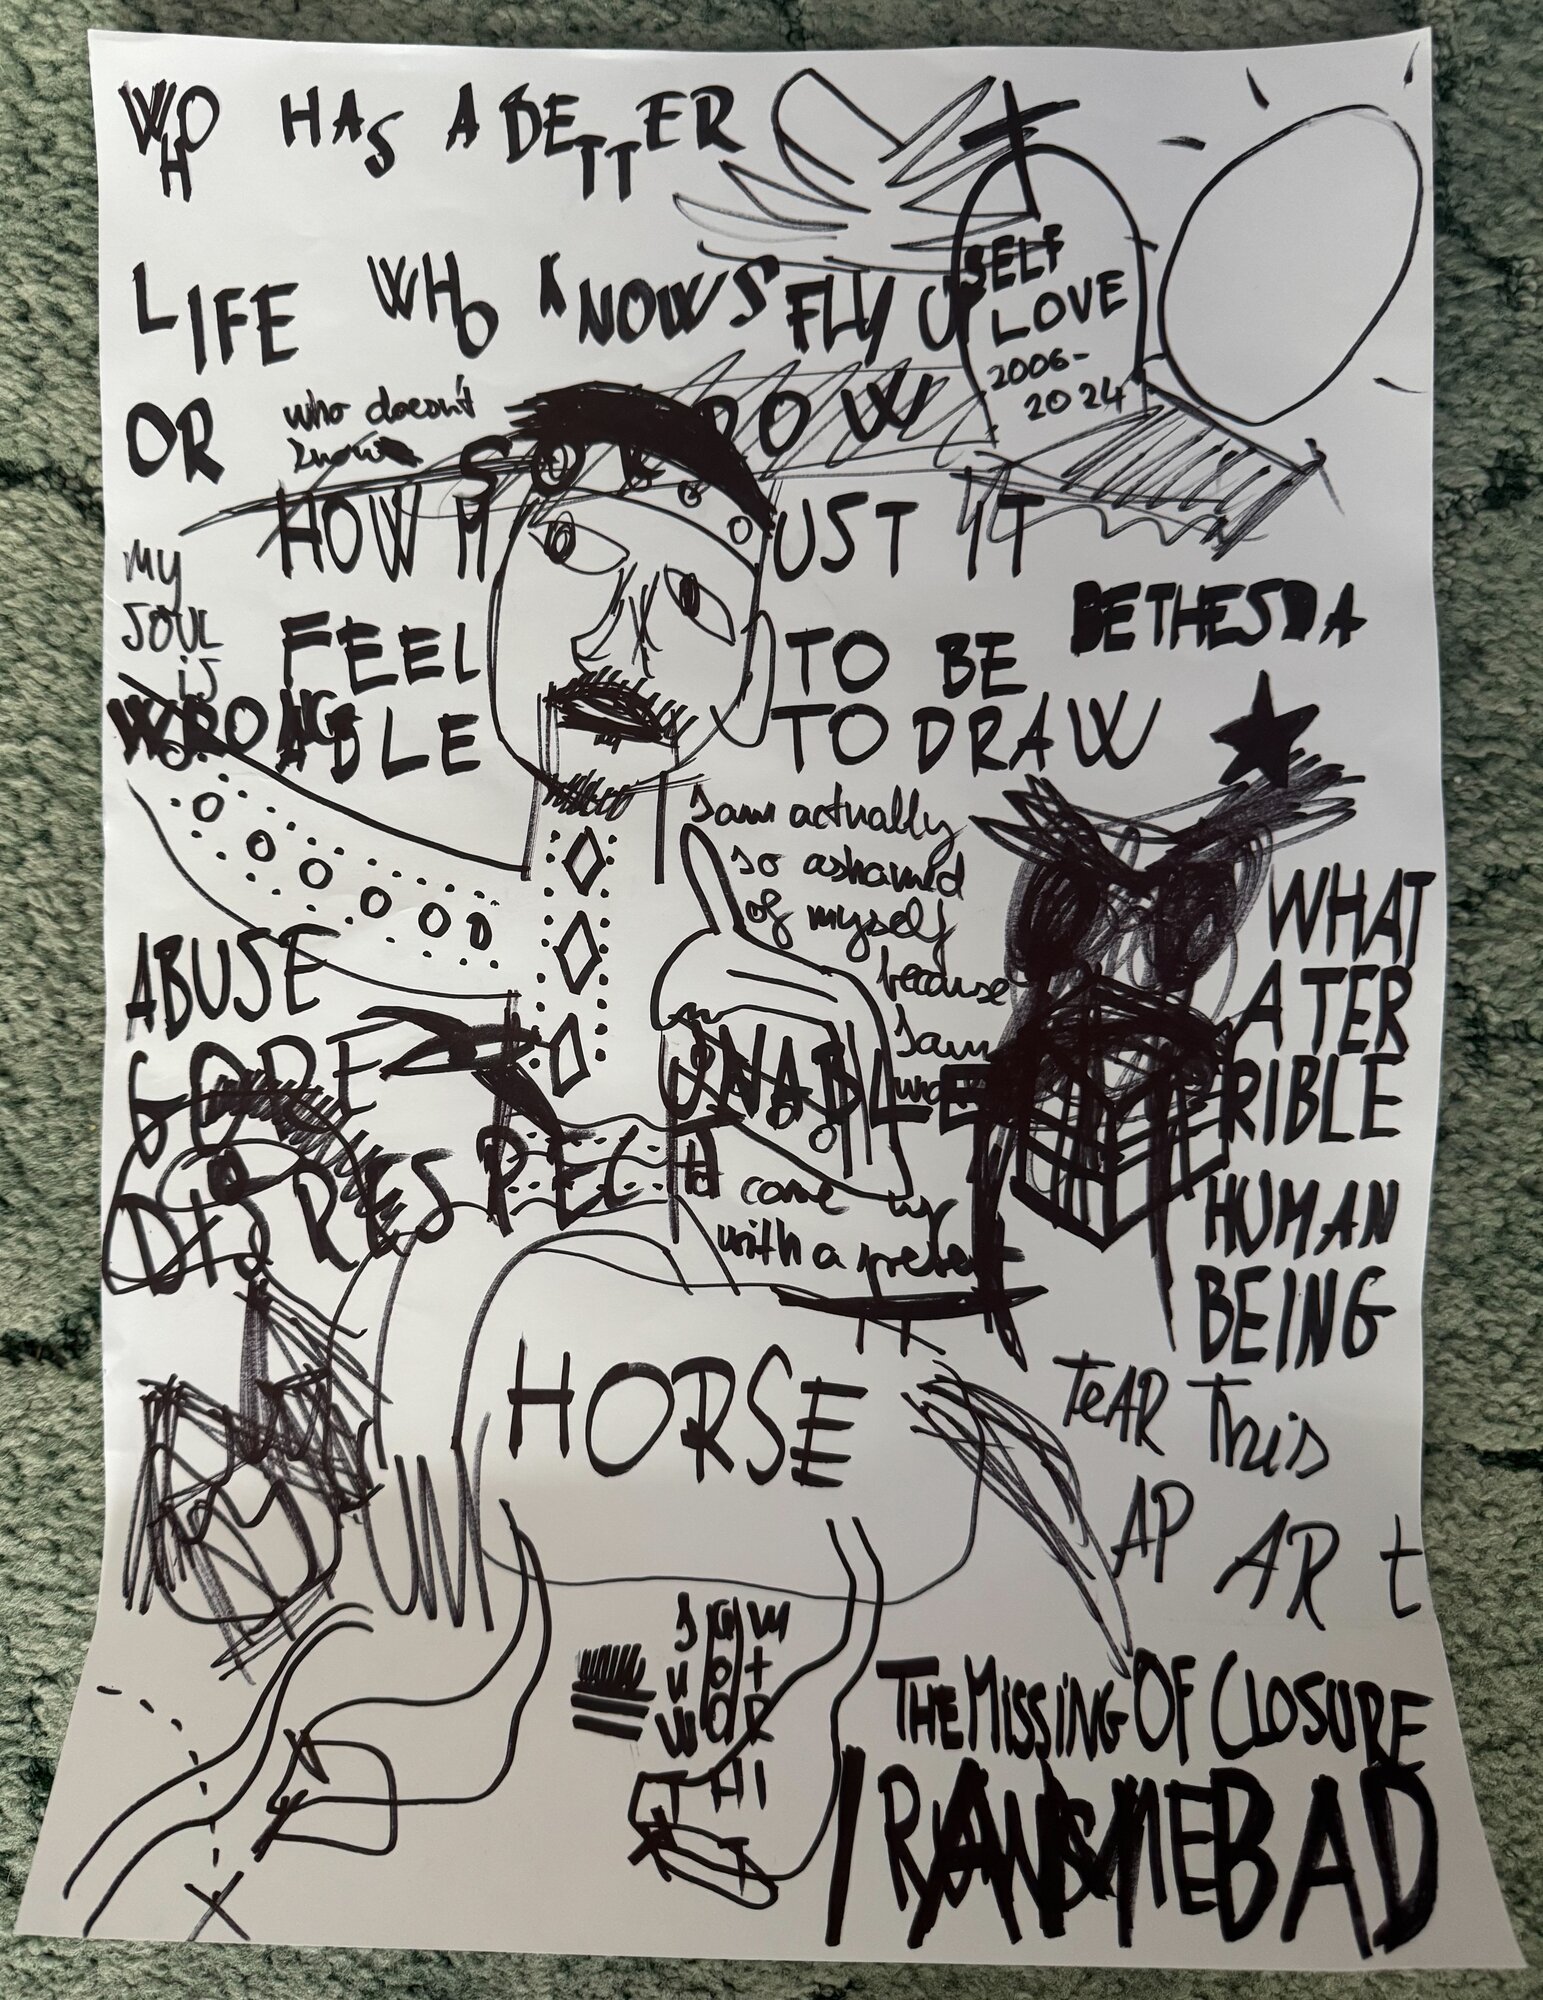 WHO HAS A BETTER
LIFE WHO KNOWS FLY UP
SELF
LOVE
2006-
2024
OR who doesn't
know
SORROW
HOW MUST IT
FEEL TO BE
ABLE TO DRAW
MY
SOUL
is
WRONG
BETHESDA
I am actually
so ashamed
of myself
because
I am
UNABLE
to come up
with a
ABUSE
GORE
DISRESPECT
WHAT
A TER
RIBLE
HUMAN
BEING
HORSE
TeAR This
AP AR t
THE MISSING OF CLOSURE
BAD